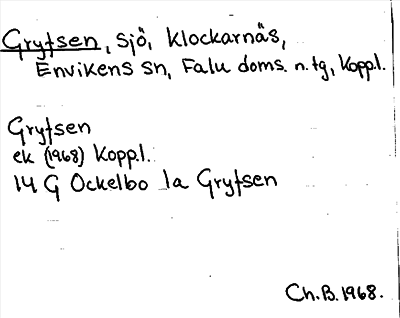 Grytsen, sjö, Klockarnäs,
Envikens sn, Falu doms. n. tg, Kopp.l.
Grytsen
ek (1968) Kopp.l.
14 G Ockelbo 1a Grytsen
Ch.B. 1968.